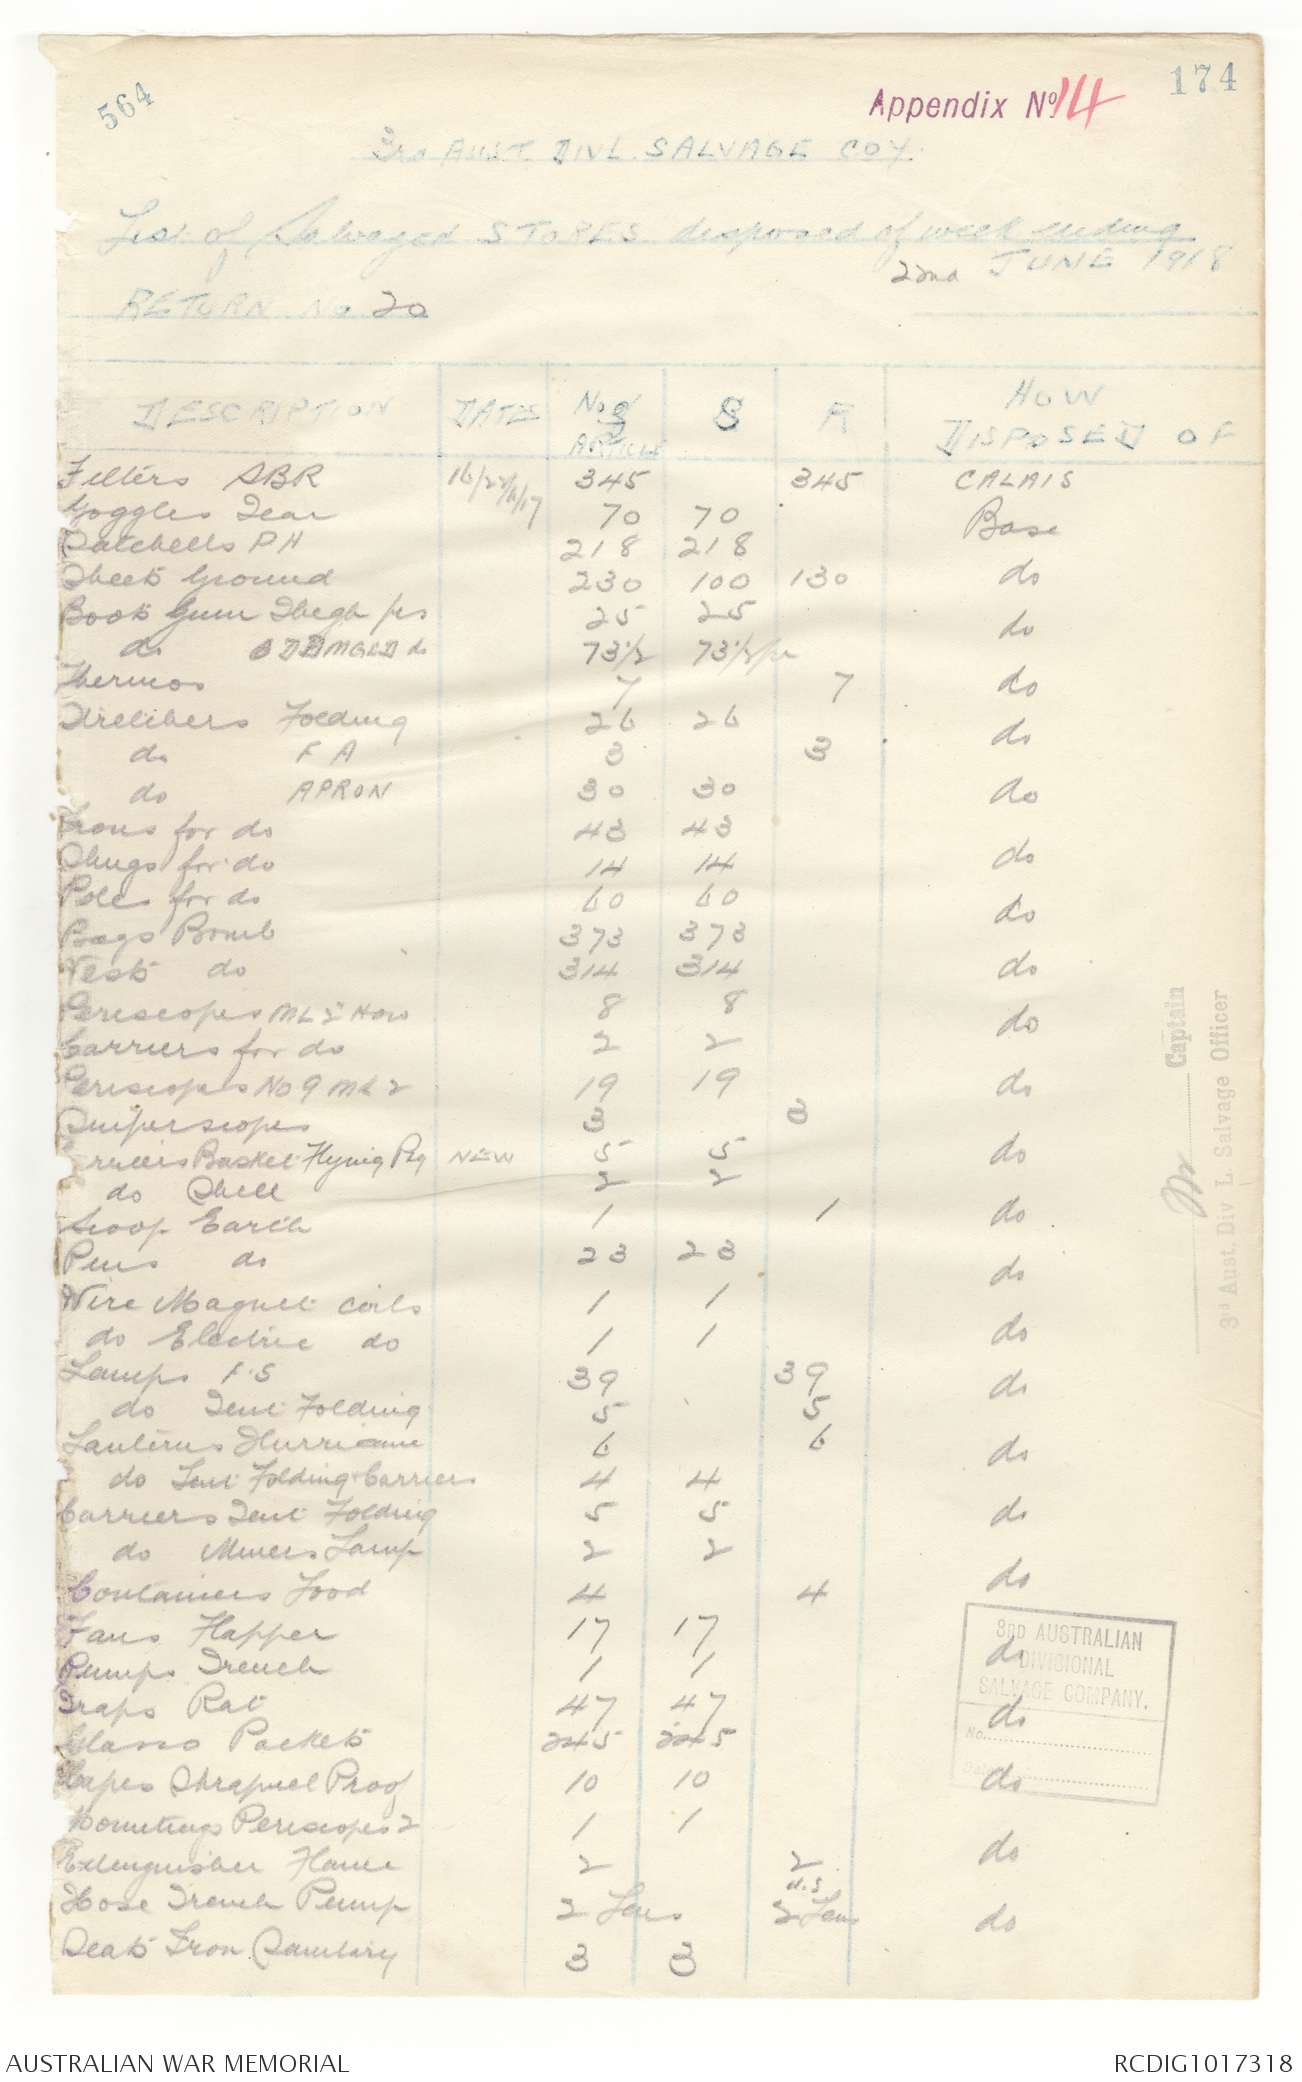 564
Appendix No 14
174
3rd AUST. DIVL. SALVAGE COY.
List of Salvaged STORES disposed of week ending
22nd JUNE 1918
RETURN No 20
DESCRIPTION DATES No of ARTICLE S R HOW DISPOSED OF
Filters SBR 16/22/6/17 345 345 CALAIS
Goggles Tear 70 70 Base
Satchells PH 218 218
Sheets Ground 230 100 130 do
Boots Gum Thegh prs 25 25 do
do ODD MGLD do 73 1/2 73 1/2 pr
Thermos 7 7 do
Stretchers Folding 26 26
do F A 3 3 do
do APRON 30 30 do
Irons for do 43 43
Slings for do 14 14 do
Poles for do 60 60
Bags Bomb 373 373 do
Vests do 314 314 do
Periscopes 8 8
Carriers for do 2 2 do
Periscopes No 9 MK 2 19 19 do
Sniperscopes 3 3
Carriers Basket Flying Pig NEW 5 5 do
do Shell 2 2
Scoop Earth 1 1 do
Pins do 23 23
do
Wire Magnet coils 1 1
do Electric do 1 1 do
Lamps F.S 39 39 do
do Tent Folding 5 5
Lanterns Hurricane 6 6 do
do Tent Folding Carriers 4 4
Carriers Tent Folding 5 5 do
do Miners Lamp 2 2
Containers Food 4 4 do
Fans Flapper 17 17
Pumps Trench 1 1 do
Traps Rat 47 47 do
Glasso Packets 245 245
Capes Shrapnel Proof 10 10 do
Mountings Periscopes 2 1 1
Extinguisher Flame 2 2 do
U.S
Hose Trench Pump 2 Lens 2 Lens do
Seats Iron Sanitary 3 3
Captain
3rd Aust. Div L. Salvage Officer
3RD AUSTRALIAN
DIVISIONAL
SALVAGE COMPANY.
No.
Date
AUSTRALIAN WAR MEMORIAL
RCDIG1017318